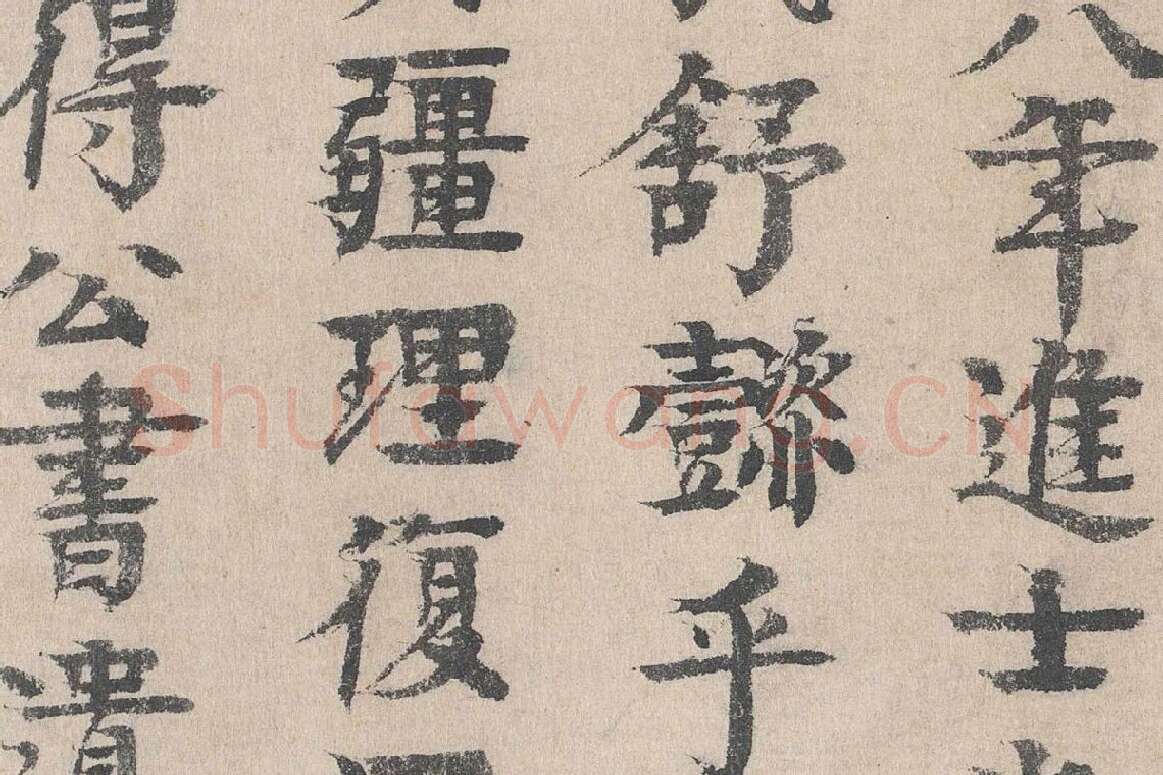 八年進士
舒懿乎
疆理復
得公書遺
Shufawang.CN